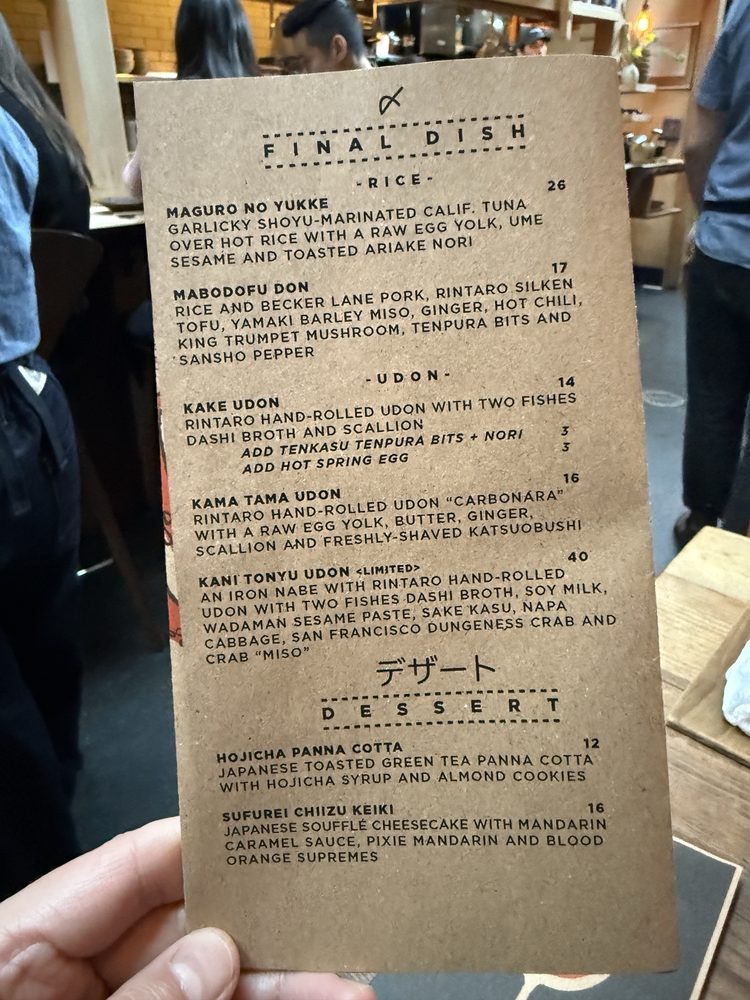 〆
FINAL DISH
-RICE-
MAGURO NO YUKKE 26
GARLICKY SHOYU-MARINATED CALIF. TUNA
OVER HOT RICE WITH A RAW EGG YOLK, UME
SESAME AND TOASTED ARIAKE NORI
MABODOFU DON 17
RICE AND BECKER LANE PORK, RINTARO SILKEN
TOFU, YAMAKI BARLEY MISO, GINGER, HOT CHILI,
KING TRUMPET MUSHROOM, TENPURA BITS AND
SANSHO PEPPER
-UDON-
KAKE UDON 14
RINTARO HAND-ROLLED UDON WITH TWO FISHES
DASHI BROTH AND SCALLION
ADD TENKASU TENPURA BITS + NORI 3
ADD HOT SPRING EGG 3
KAMA TAMA UDON 16
RINTARO HAND-ROLLED UDON “CARBONARA”
WITH A RAW EGG YOLK, BUTTER, GINGER,
SCALLION AND FRESHLY-SHAVED KATSUOBUSHI
KANI TONYU UDON <LIMITED> 40
AN IRON NABE WITH RINTARO HAND-ROLLED
UDON WITH TWO FISHES DASHI BROTH, SOY MILK,
WADAMAN SESAME PASTE, SAKE KASU, NAPA
CABBAGE, SAN FRANCISCO DUNGENESS CRAB AND
CRAB “MISO”
デザート
DESSERT
HOJICHA PANNA COTTA 12
JAPANESE TOASTED GREEN TEA PANNA COTTA
WITH HOJICHA SYRUP AND ALMOND COOKIES
SUFUREI CHIIZU KEIKI 16
JAPANESE SOUFFLÉ CHEESECAKE WITH MANDARIN
CARAMEL SAUCE, PIXIE MANDARIN AND BLOOD
ORANGE SUPREMES